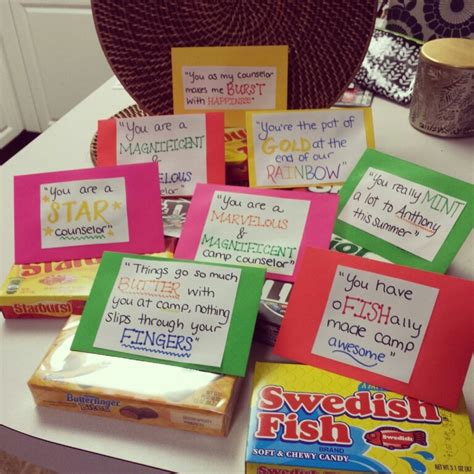 "You as my counselor
makes me BURST
with HAPPINESS"
"You are a
MAGNIFICENT
&
counselor"
"You're the pot of
GOLD at the
end of our
RAINBOW"
"You are a
STAR
counselor"
"You are a
MARVELOUS
&
MAGNIFICENT
camp counselor"
"You really MINT
a lot to Anthony
this summer"
"Things go so much
BUTTER with
you at camp, nothing
slips through your
FINGERS"
"You have
oFISHally
made camp
awesome"
Starburst
Butterfinger
Bites
Swedish
Fish
BRAND
SOFT & CHEWY CANDY